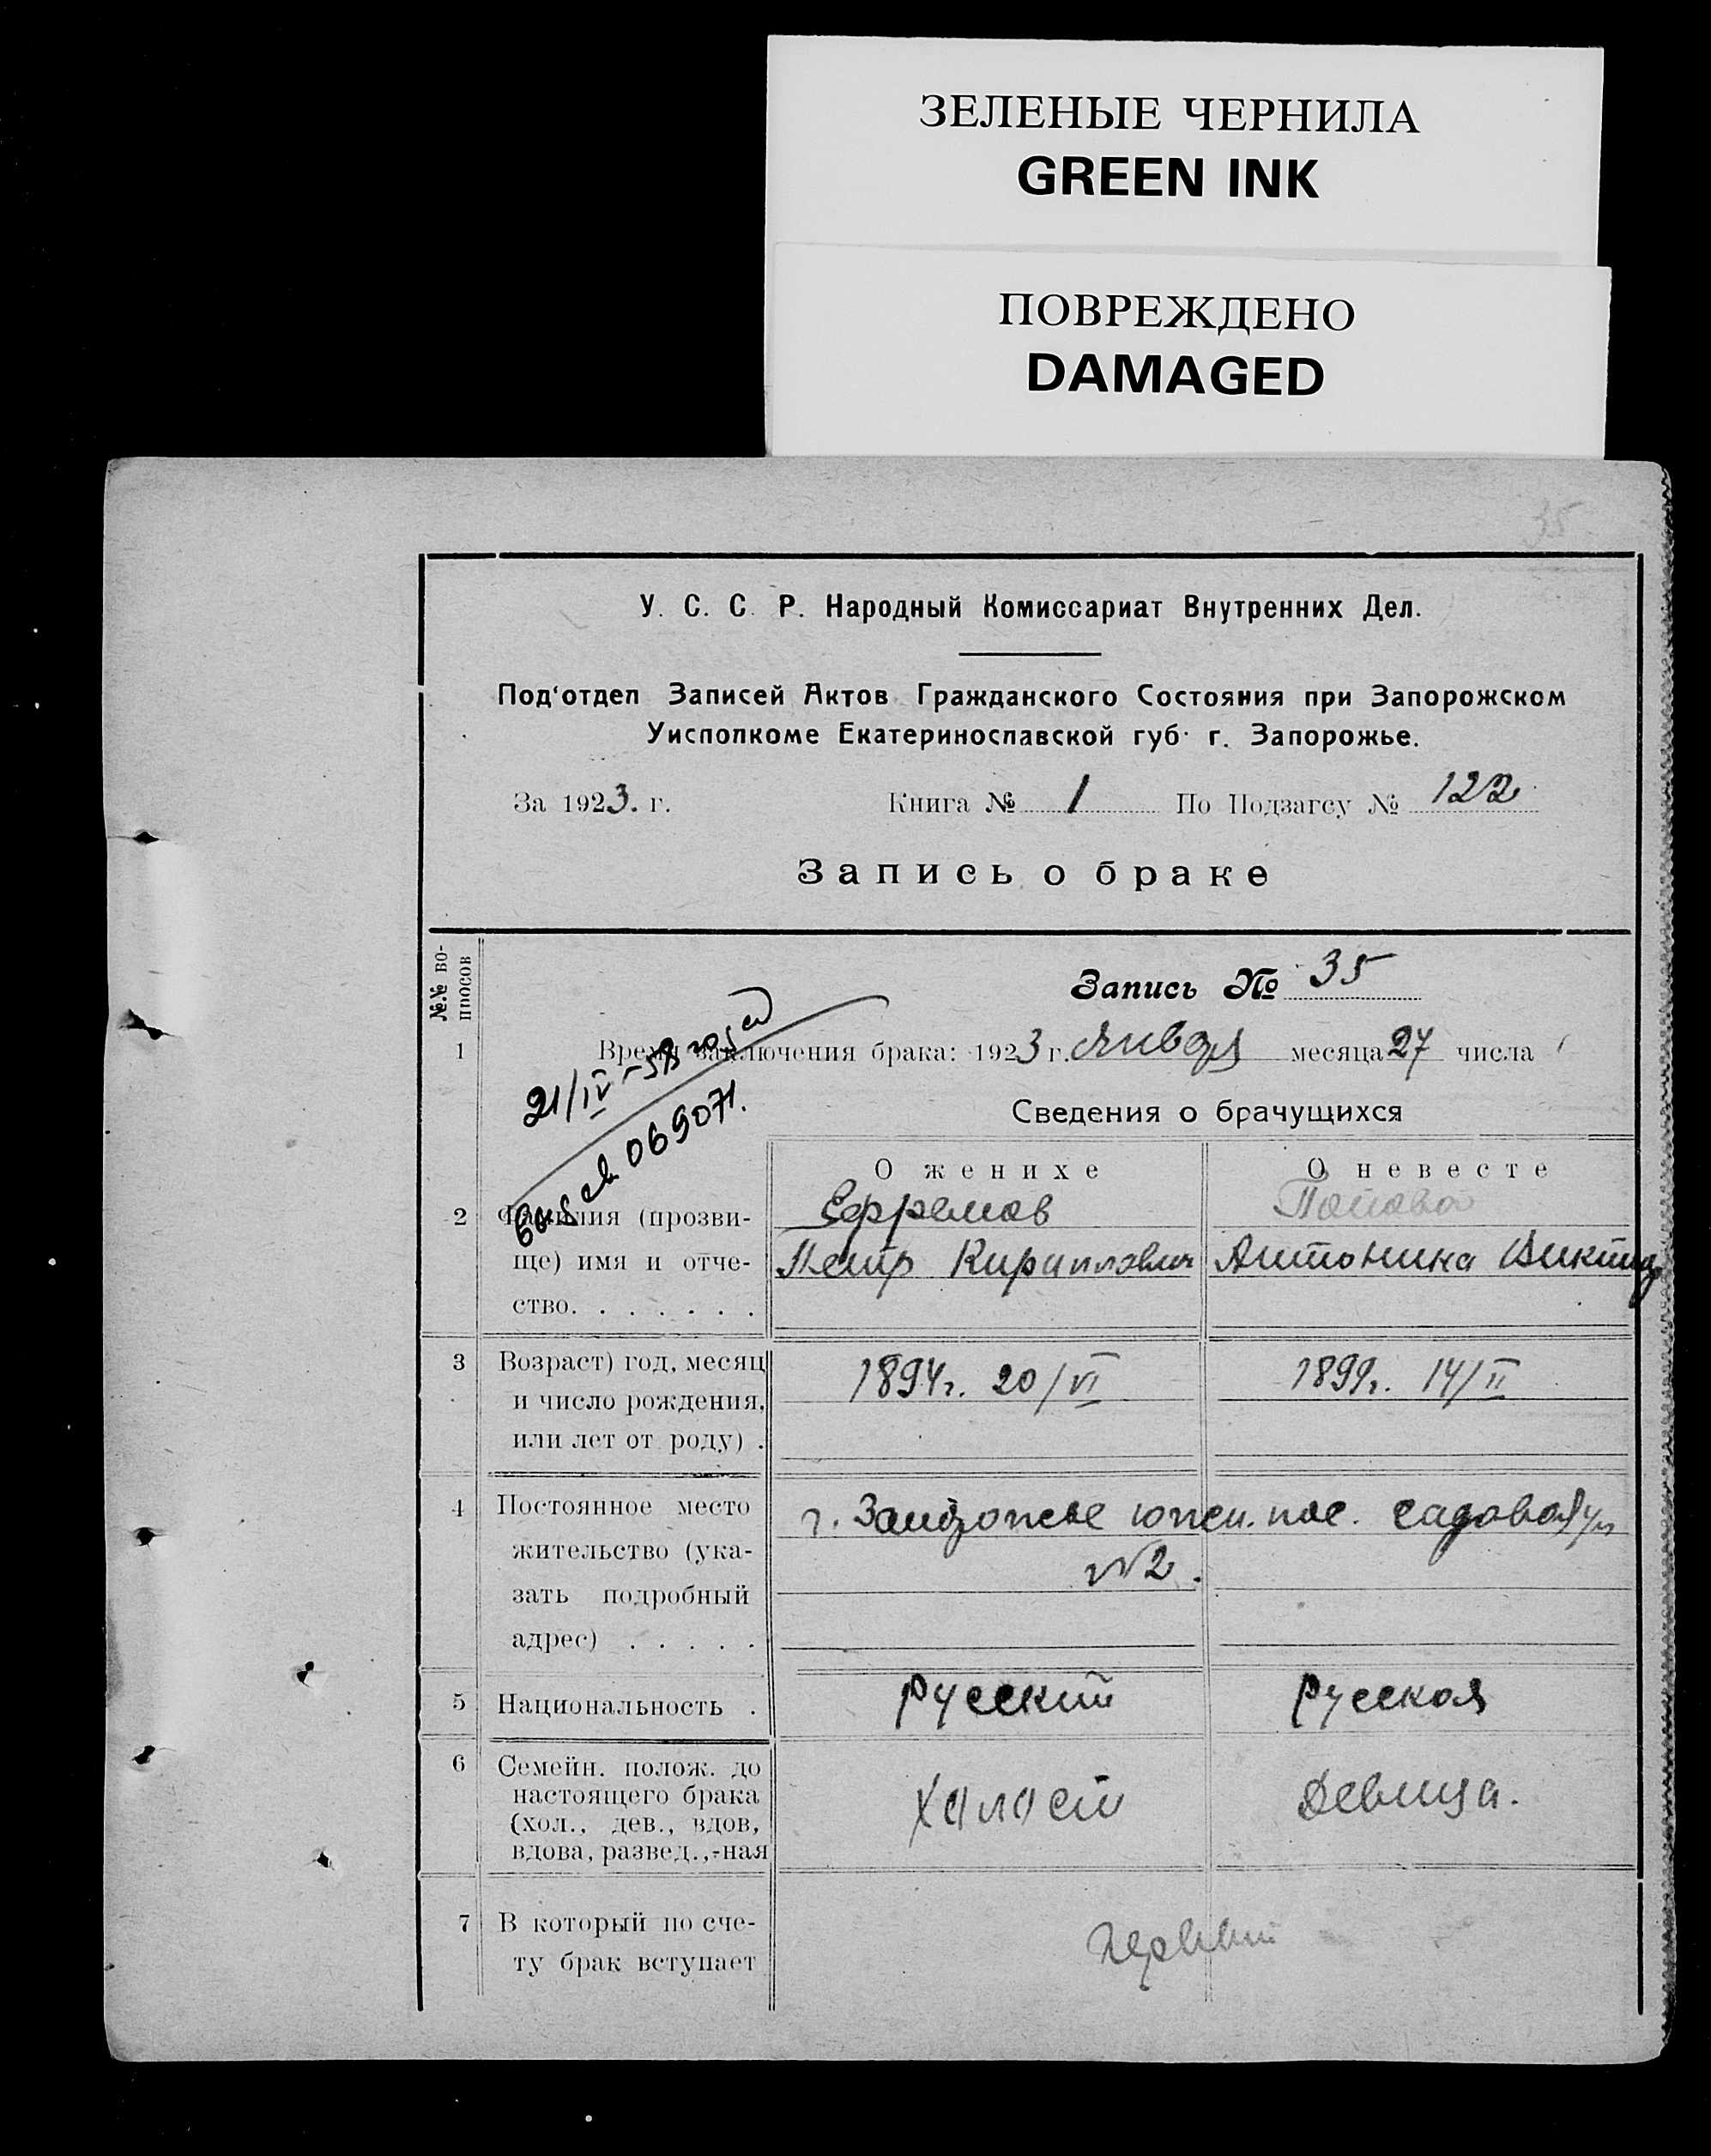 ЗЕЛЕНЫЕ ЧЕРНИЛА
GREEN INK
ПОВРЕЖДЕНО
DAMAGED
35
У. С. С. Р. Народный Комиссариат Внутренних Дел.
Под'отдел Записей Актов Гражданского Состояния при Запорожском
Уисполкоме Екатеринославской губ. г. Запорожье.
За 1923. г. Книга № 1 По Подзагсу № 122
Запись о браке
№.№ во-
просов
Запись № 35
1 Время заключения брака: 1923 г. Января месяца 27 числа
21/IV-58
06907
Сведения о брачущихся
О женихе О невесте
2 Фамилия (прозви- Ефремов Попова
ще) имя и отче- Петр Кириллович Антонина Виктор
ство. . . . . . .
3 Возраст) год, месяц 1894г. 20/VI 1899г. 14/II
и число рождения,
или лет от роду) .
4 Постоянное место г. Запорожье южн. пос. садовая ул
жительство (ука- №2.
зать подробный
адрес) . . . . .
5 Национальность . русский русская
6 Семейн. полож. до
настоящего брака холост девица.
(хол., дев., вдов,
вдова, развед.,-ная
7 В который по сче- первый
ту брак вступает